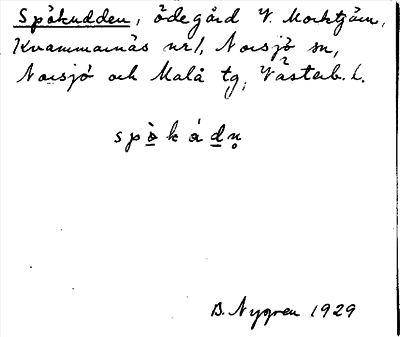 Spökudden, ödegård V. Morktjärn,
Kvammarnäs nr 1, Norsjö sn,
Norsjö och Malå tg, Västerb. l.
spò̱káḏn̥
B. Nygren 1929